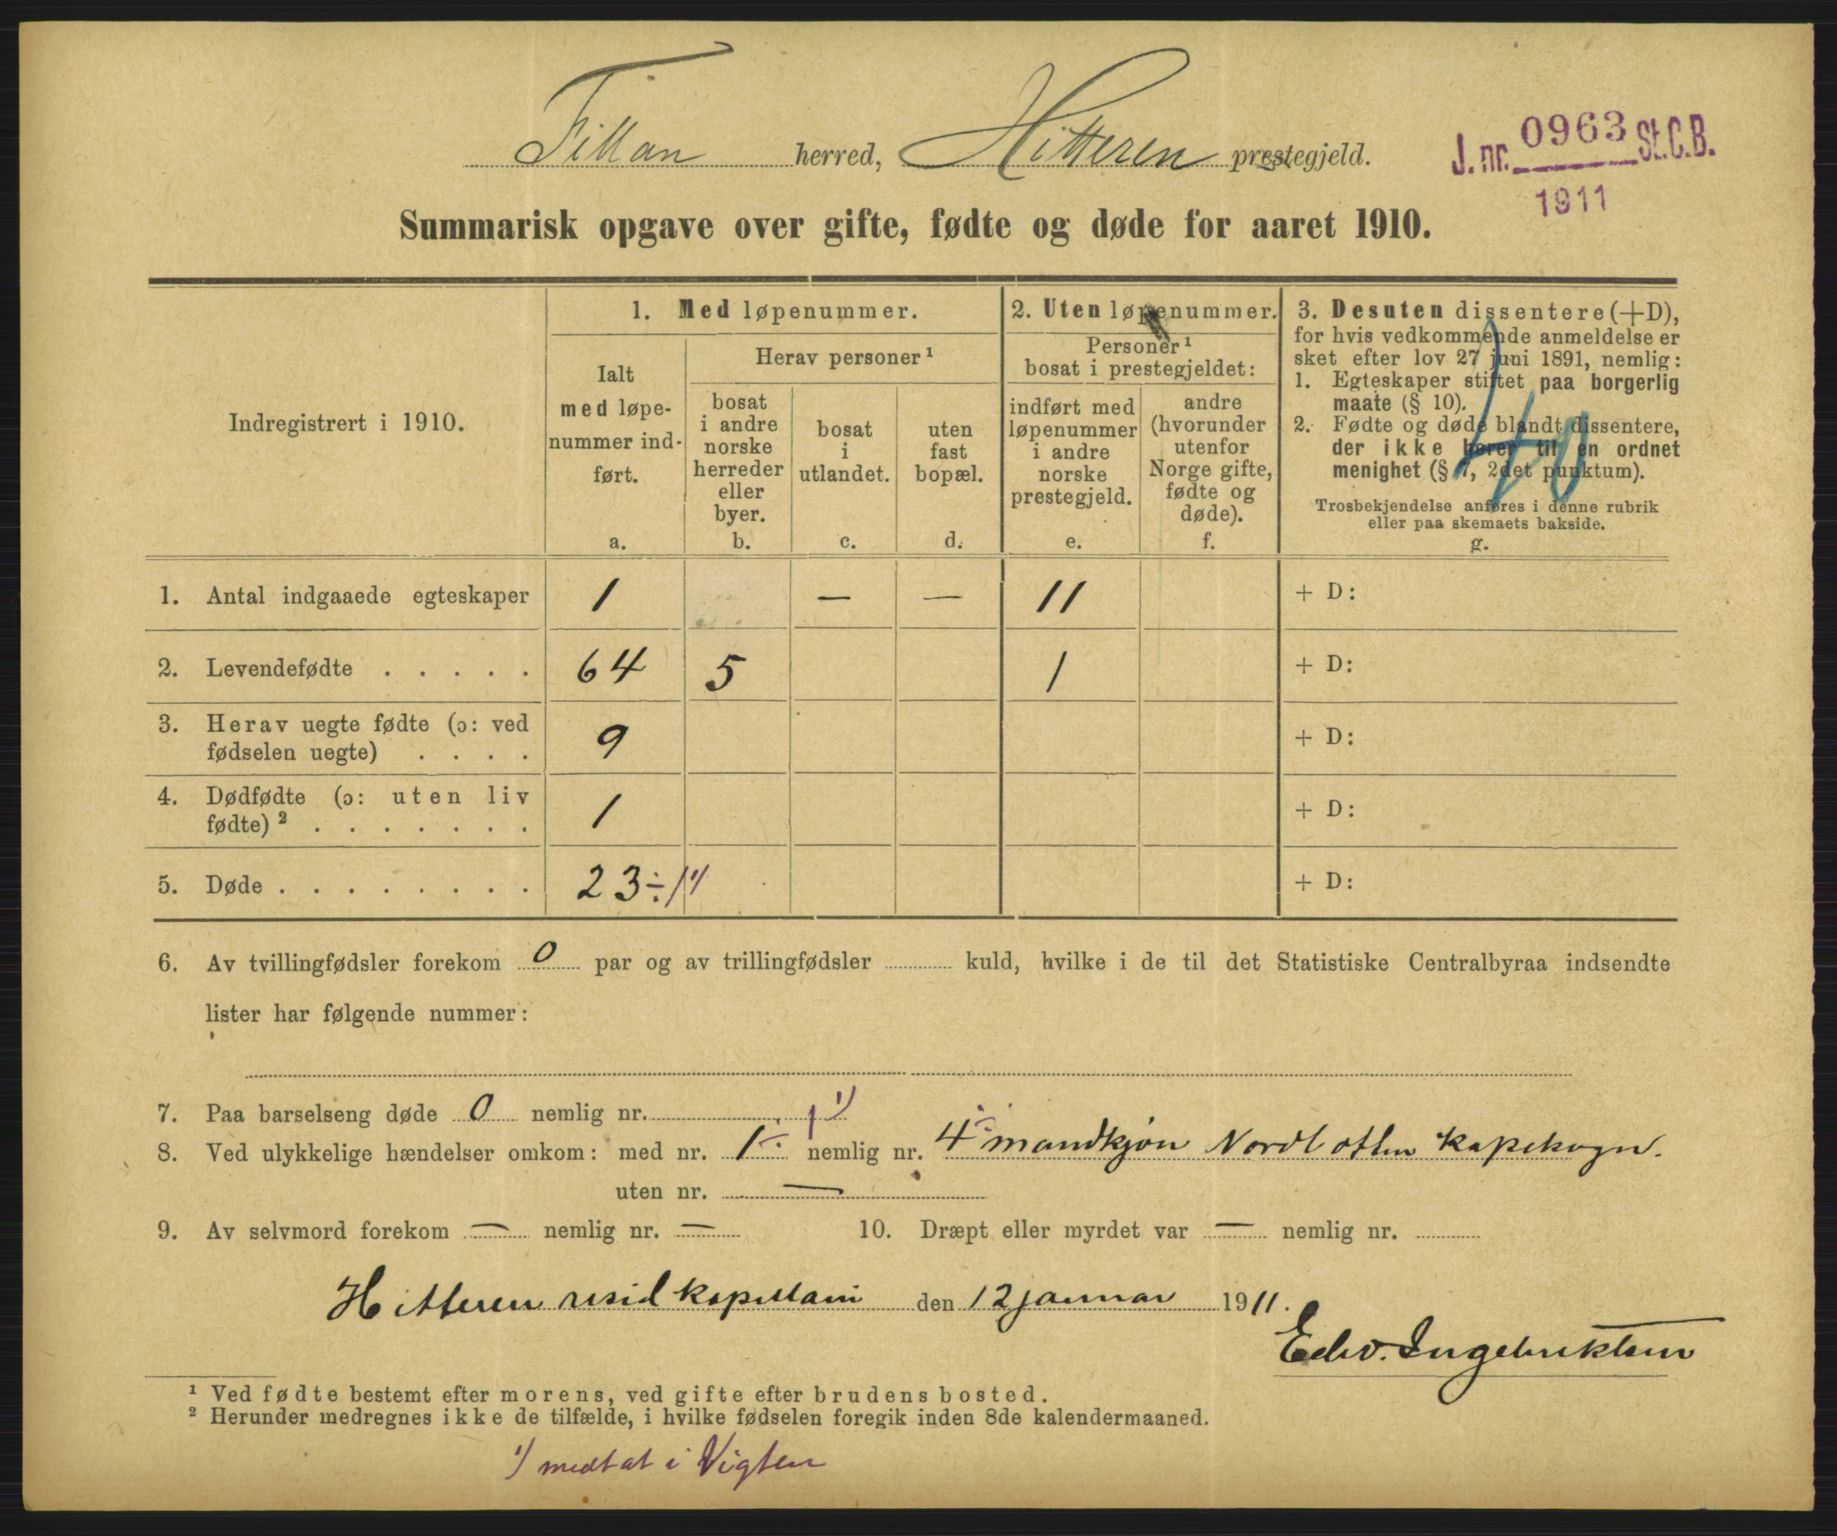 Fillan herred, Hitteren prestegjeld.
J. nr. 0963 St. C. B.
1911
Summarisk opgave over gifte, fødte og døde for aaret 1910.
Indregistrert i 1910.
1. Med løpenummer.
Ialt med løpenummer indført.
a.
Herav personer ¹
bosat i andre norske herreder eller byer.
b.
bosat i utlandet.
c.
uten fast bopæl.
d.
2. Uten løpenummer.
Personer ¹ bosat i prestegjeldet:
indført med løpenummer i andre norske prestegjeld.
e.
andre (hvorunder utenfor Norge gifte, fødte og døde).
f.
3. Desuten dissentere (+D),
for hvis vedkommende anmeldelse er
sket efter lov 27 juni 1891, nemlig:
1. Egteskaper stiftet paa borgerlig
maate (§ 10).
2. Fødte og døde blandt dissentere,
der ikke hører til en ordnet
menighet (§ 7, 2det punktum).
Trosbekjendelse anføres i denne rubrik
eller paa skemaets bakside.
g.
1. Antal indgaaede egteskaper 1 — — 11 + D:
2. Levendefødte . . . . . 64 5 1 + D:
3. Herav uegte fødte (ɔ: ved
fødselen uegte) . . . . 9 + D:
4. Dødfødte (ɔ: uten liv
fødte) ² . . . . . . . 1 + D:
5. Døde . . . . . . . . 23 ÷ 1 ¹) + D:
6. Av tvillingfødsler forekom 0 par og av trillingfødsler kuld, hvilke i de til det Statistiske Centralbyraa indsendte
lister har følgende nummer:
7. Paa barselseng døde 0 nemlig nr.
8. Ved ulykkelige hændelser omkom: med nr. 1 ÷ 1 ¹) nemlig nr. 4 ÷ mandkjøn
uten nr. —
9. Av selvmord forekom — nemlig nr. — 10. Dræpt eller myrdet var — nemlig nr.
Hitteren resid kapellani den 12 januar 1911.
Edv. Ingebriktsen
¹ Ved fødte bestemt efter morens, ved gifte efter brudens bosted.
² Herunder medregnes ikke de tilfælde, i hvilke fødselen foregik inden 8de kalendermaaned.
¹) medtat i Vigten